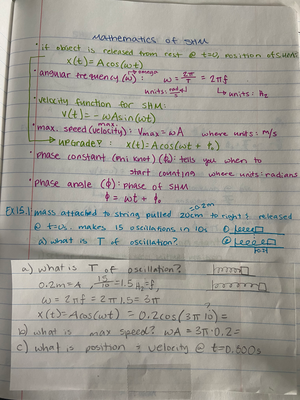 Mathematics of SHM
• if object is released from rest @ t=0, position of SHM is
x(t) = A cos(ωt)
• angular frequency (ω): ω = 2π/T = 2πf
omega
units: rad/s
units: Hz
• velocity function for SHM:
v(t) = -ωA sin(ωt)
• max. speed (velocity): Vmax = ωA where units: m/s
upgrade?: x(t) = A cos(ωt + ϕ₀)
• phase constant (Phi knot) (ϕ₀): tells you when to
start counting where units: radians
• phase angle (ϕ): phase of SHM
ϕ = ωt + ϕ₀
=0.2m
EX 15.1 mass attached to string pulled 20cm to right & released
@ t=0. makes 15 oscillations in 10s ①
a) what is T of oscillation? ②
a) what is T of oscillation?
0.2m = A, 15/10 = 1.5 Hz = f,
ω = 2πf = 2π1.5 = 3π
x(t) = A cos(ωt) = 0.2cos(3π10) =
?
b) what is max speed? ωA = 3π·0.2 =
c) what is position & velocity @ t=0.800s